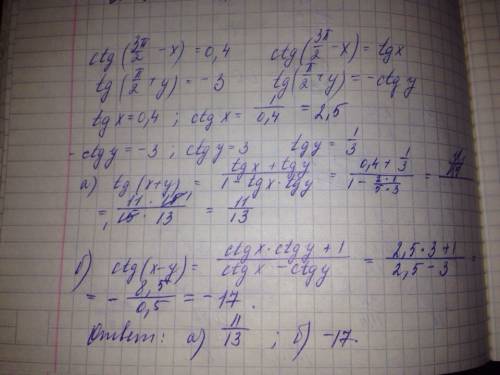 ctg(3π/2 − x) = 0,4     ctg(3π/2 − x) = tgx
tg(π/2 + y) = −3     tg(π/2 + y) = −ctg y
tg x = 0,4 ; ctg x = 1/0,4 = 2,5
−ctg y = −3 ; ctg y = 3     tg y = 1/3
а) tg(x+y) = (tgx + tgy)/(1 − tgx·tgy) = (0,4 + 1/3)/(1 − (2·1)/(5·3)) =
= (11 · 15)/(15 · 13) = 11/13
б) ctg(x−y) = (ctgx · ctgy + 1)/(ctgx − ctgy) = (2,5·3+1)/(2,5−3) =
= − 8,5/0,5 = −17.
Ответ: а) 11/13 ; б) −17.